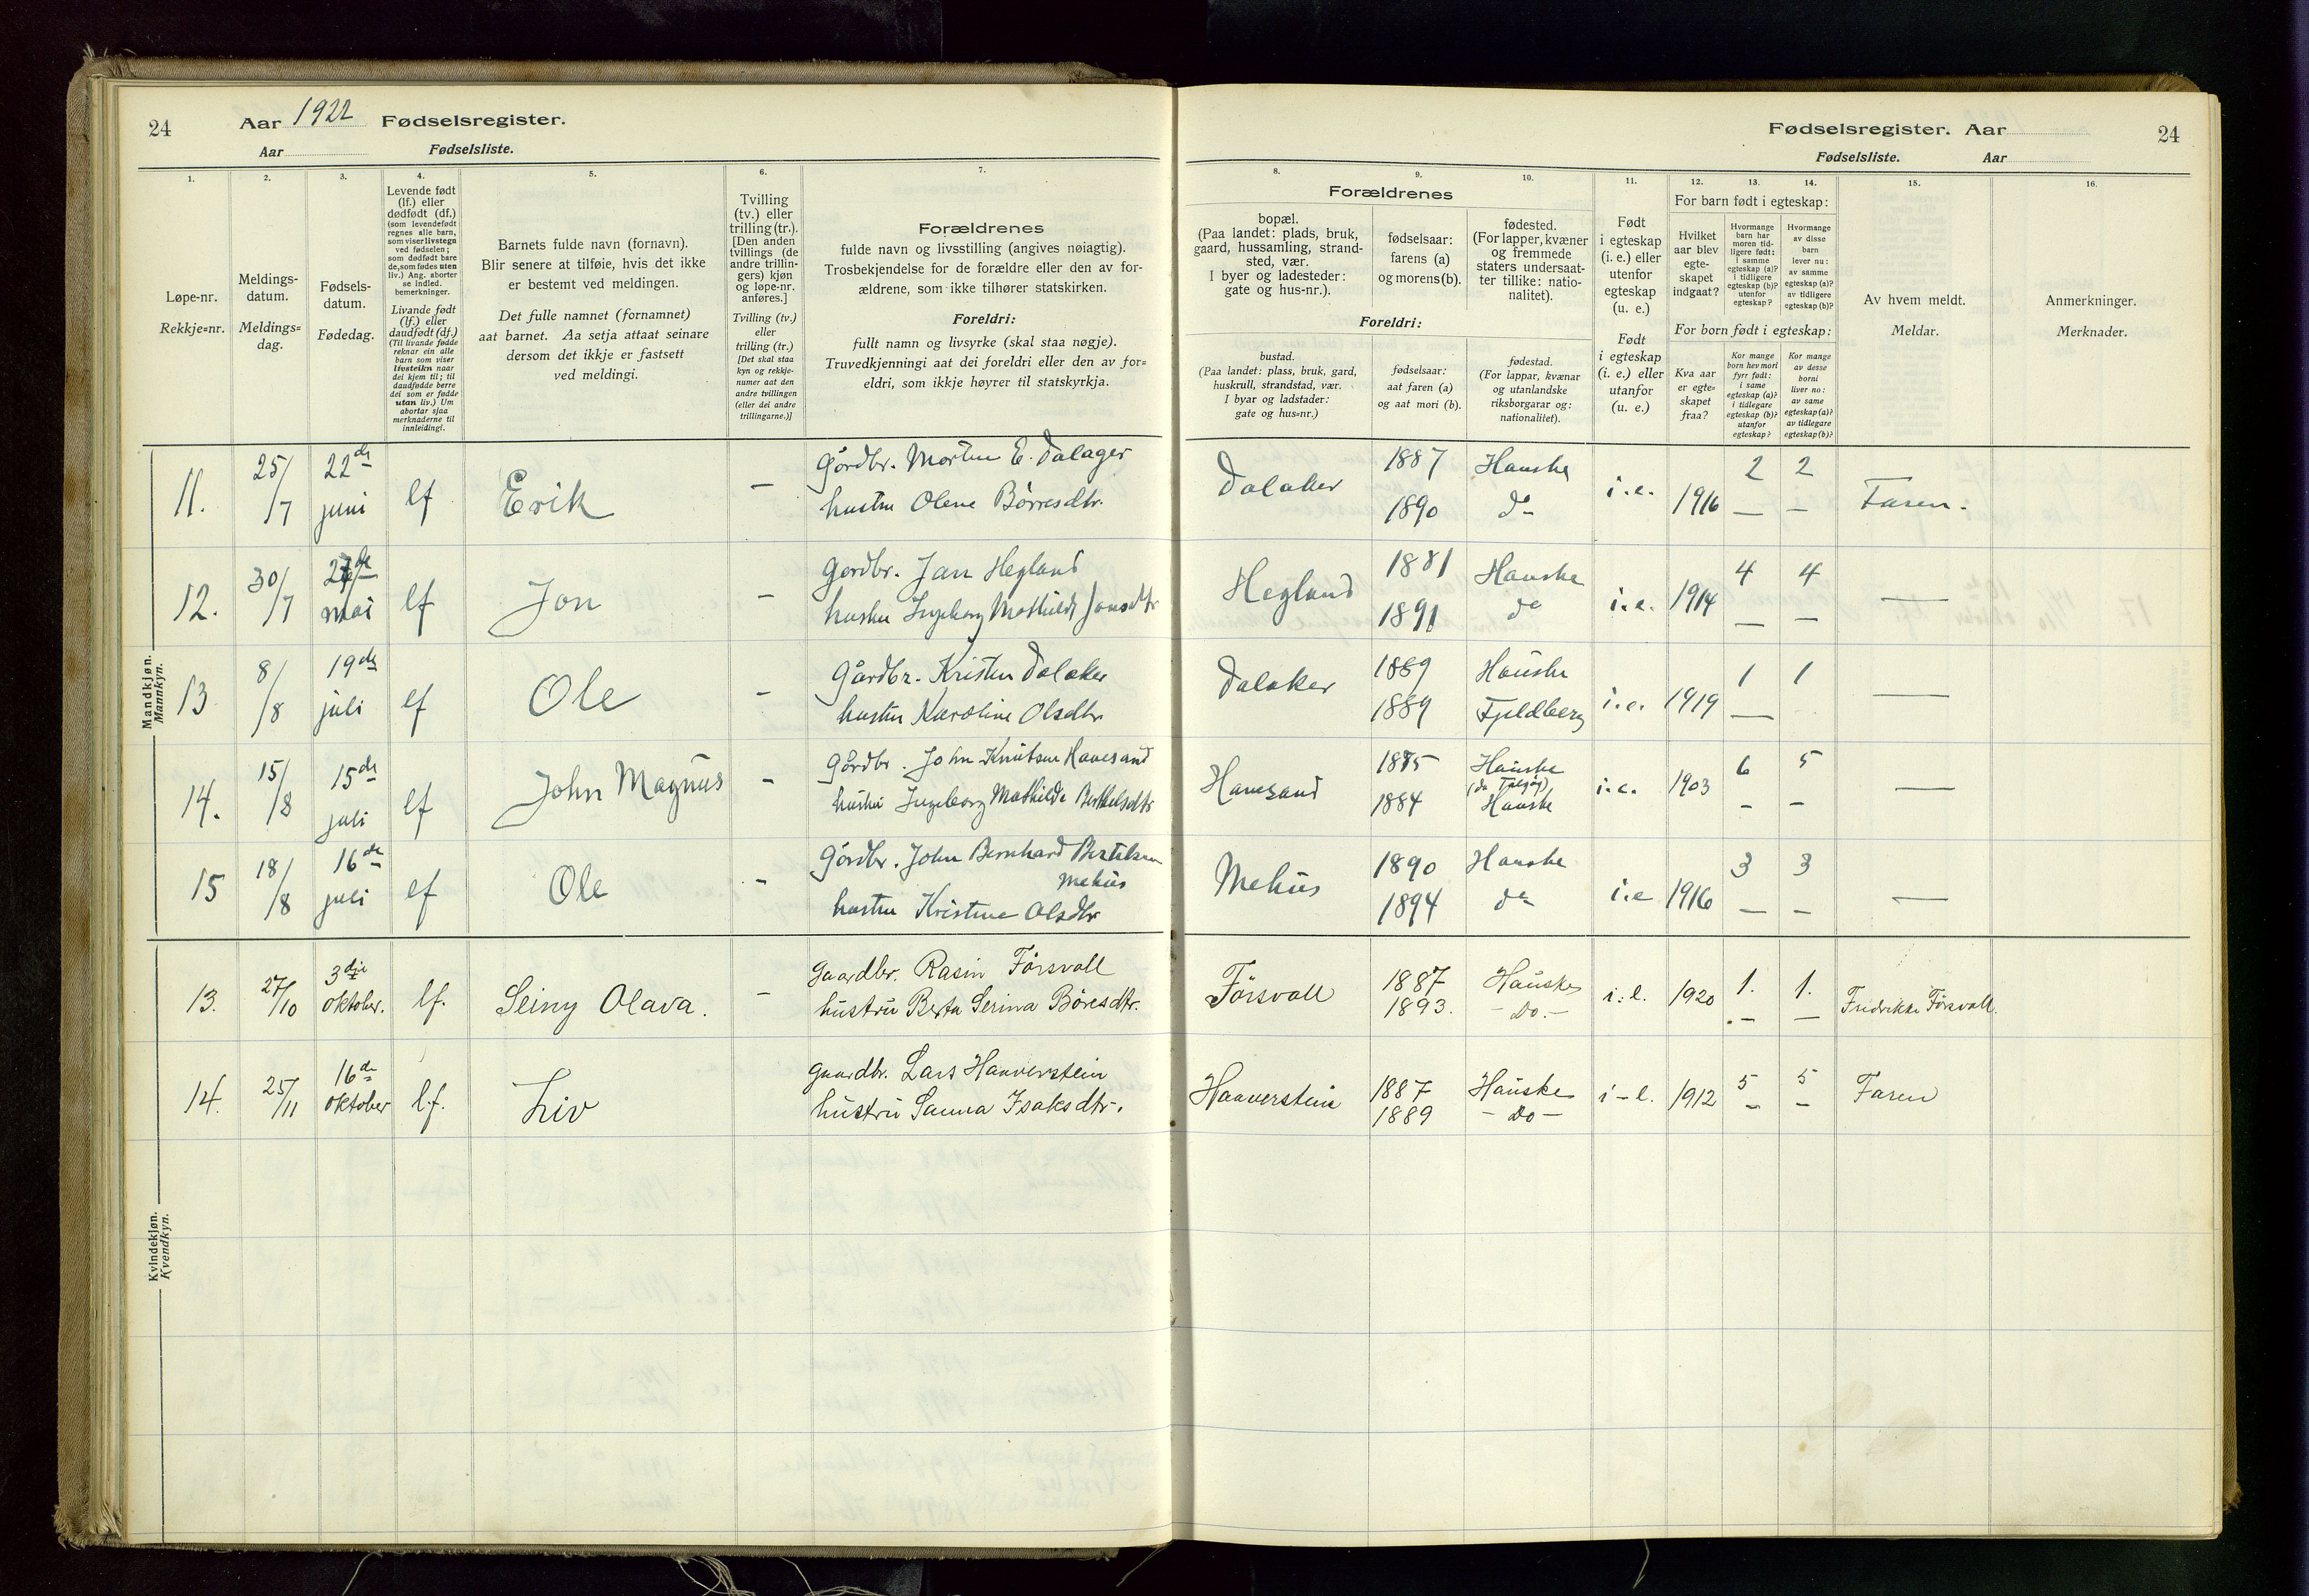 24
Aar 1922 Fødselsregister.
Aar Fødselsliste.
Fødselsregister. Aar
24
Fødselsliste. Aar
1. 2. 3. 4. 5. 6. 7. 8. 9. 10. 11. 12. 13. 14. 15. 16.
Løpe-nr.
Rekkje=nr.
Meldings-
datum.
Meldings=
dag.
Fødsels-
datum.
Fødedag.
Levende født
(lf.) eller
dødfødt (df.)
(som levendefødt
regnes alle barn,
som viser livstegn
ved fødselen;
som dødfødt bare
de, som fødes uten
liv.) Ang. aborter
se indled.
bemerkninger.
Livande født
(lf.) eller
daudfødt (df.)
(Til livande fødde
reknar ein alle
barn som viser
livsteikn naar
dei kjem til; til
daudfødde berre
dei som er fødde
utan liv.) Um
abortar sjaa
merknaderne til
innleidingi.
Barnets fulde navn (fornavn).
Blir senere at tilføie, hvis det ikke
er bestemt ved meldingen.
Det fulle namnet (fornamnet)
aat barnet. Aa setja attaat seinare
dersom det ikkje er fastsett
ved meldingi.
Tvilling
(tv.) eller
trilling (tr.).
[Den anden
tvillings (de
andre trillin-
gers) kjøn
og løpe-nr.
anføres.]
Tvilling (tv.)
eller
trilling (tr.)
[Det skal staa
kyn og rekkje-
numer aat den
andre tvillingen
(eller dei andre
trillingarne.)]
Forældrenes
fulde navn og livsstilling (angives nøiagtig).
Trosbekjendelse for de forældre eller den av for-
ældrene, som ikke tilhører statskirken.
Foreldri:
fullt namn og livsyrke (skal staa nøgje).
Truvedkjenningi aat dei foreldri eller den av for=
eldri, som ikkje høyrer til statskyrkja.
Forældrenes
bopæl.
(Paa landet: plads, bruk,
gaard, hussamling, strand-
sted, vær.
I byer og ladesteder:
gate og hus-nr.).
fødselsaar:
farens (a)
og morens (b).
fødested.
(For lapper, kvæner
og fremmede
staters undersaat-
ter tillike: natio-
nalitet).
Foreldri:
bustad.
(Paa landet: plass, bruk, gard,
huskrull, strandstad, vær.
I byar og ladstader:
gate og hus=nr.)
fødselsaar:
aat faren (a)
og aat mori (b).
fødestad.
(For lappar, kvænar
og utanlandske
riksborgarar og:
nationalitet).
Født
i egteskap
(i. e.) eller
utenfor
egteskap
(u. e.)
Født
i egteskap
(i. e.) eller
utanfor
(u. e.)
For barn født i egteskap:
Hvilket
aar blev
egte-
skapet
indgaat?
Hvormange
barn har
moren tid-
ligere født:
i samme
egteskap (a)?
i tidligere
egteskap (b)?
utenfor
egteskap?
Hvormange
av disse
barn
lever nu:
av samme
egteskap (a)?
av tidligere
egteskap (b)?
For born født i egteskap:
Kva aar
er egte=
skapet
fraa?
Kor mange
born hev mori
fyrr født:
i same
egteskap (a)?
i tidlegare
egteskap (b)?
utanfor
egteskap?
Kor mange
av desse
borni
liver no:
av same
egteskap (a)?
av tidlegare
egteskap (b)?
Av hvem meldt.
Meldar.
Anmerkninger.
Merknader.
Mandkjøn.
Mannkyn.
11. 25/7 22de juni lf Erik - Gårdbr. Morten E. Dalager
hustru Olene Børresdtr.
Dalaker 1887 Hauske i.e. 1916 2 2 Faren.
1890 do — —
12. 30/7 mai lf Jon - Gårdbr. Jan Hegland
hustru Ingeborg Mathilde Jansdtr
Hegland 1881 Hauske i.e. 1914 4 4 —
1891 do — —
13 8/8 19de juli lf Ole - Gårdbr. Kristen Dalaker
hustru Karoline Olsdtr
Dalaker 1889 Hauske i.e. 1919 1 1 —
1889 Fjeldberg —
14. 15/8 15de juli lf John Magnus - Gårdbr. John Knutsen Havesand
hustru Ingeborg Mathilde Berthelsdtr
1885 Hauske i.e. 1903 6 5 —
1884 Hauske - -
15 18/8 16de juli lf Ole - Gårdbr. John Bernhard Bertelsen
Mehus
hustru Kristine Olsdtr
Mehus 1890 Hauske i.e 1916 3 3 —
1894 do — —
Kvindekjøn.
Kvendkyn.
13. 27/10 3dje oktober. lf. Seiny Olava. - Gaardbr. Rasin Førsvoll
hustru Berta Serina Børesdtr.
Førsvoll 1887 Hauske i.e. 1920 1. 1. Fredrikke Førsvoll.
1893. - Do. - — —
14. 25/11 16de oktober l.f. Liv Gaardbr. Lars Haaverstein
hustru Sanna Isaksdtr.
Haaverstein 1887 Hauske i-e. 1912 5 5 Faren
1889 - Do - - -